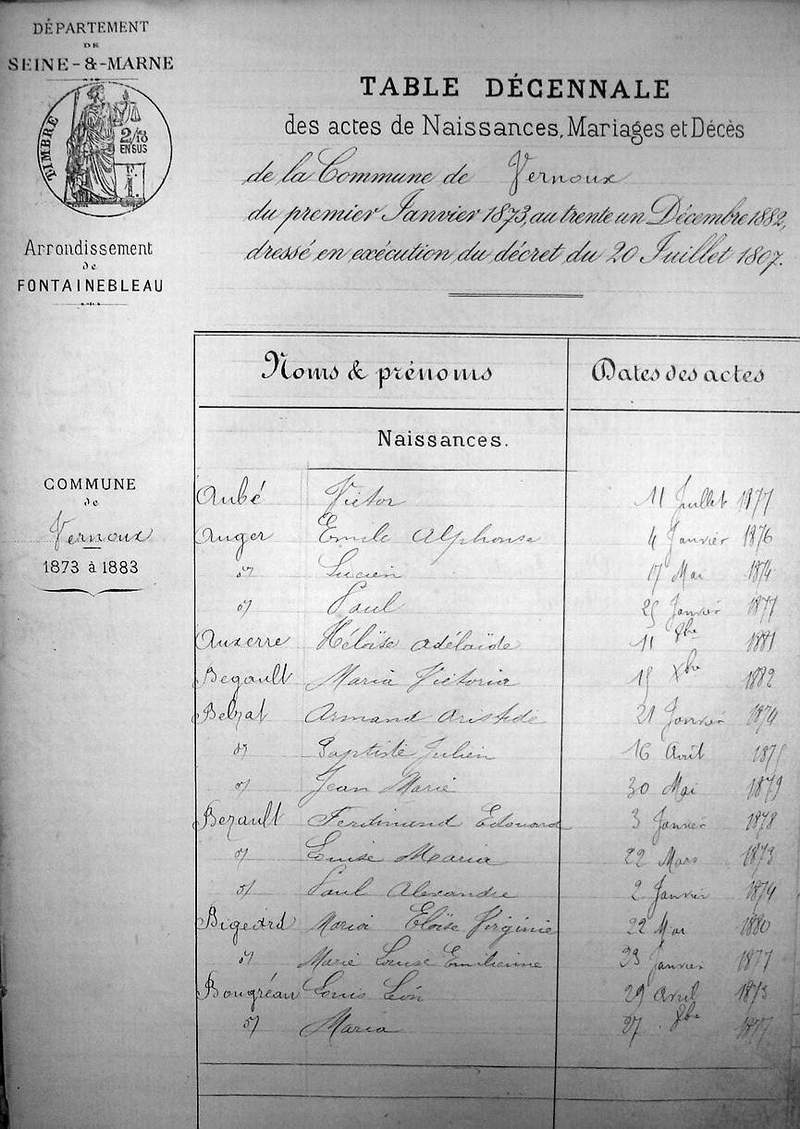 DÉPARTEMENT
DE
SEINE-&-MARNE
TIMBRE
2/10
EN SUS
Arrondissement
de
FONTAINEBLEAU
TABLE DÉCENNALE
des actes de Naissances, Mariages et Décès
de la Commune de Vernoux
du premier Janvier 1873, au trente un Décembre 1882,
dressé en exécution du décret du 20 Juillet 1807.
Noms & prénoms Dates des actes
Naissances.
COMMUNE
de
Vernoux
1873 à 1883
Aubé Victor 11 Juillet 1877
Auger Emile Alphonse 4 Janvier 1876
d° Lucien 17 Mai 1874
d° Paul 25 Janvier 1877
Auxerre Héloïse Adélaïde 11 8bre 1881
Begault Maria Victoria 15 Xbre 1882
Belzat Armand Aristide 21 Janvier 1874
d° Baptiste Julien 16 Avril 1875
d° Jean Marie 30 Mai 1879
Bezault Ferdinand Edouard 3 Janvier 1878
d° Louise Maria 22 Mars 1873
d° Paul Alexandre 2 Janvier 1874
Bigeard Maria Eloïse Virginie 22 Mai 1880
d° Marie Louise Emilienne 23 Janvier 1877
Bougréau Louis Léon 29 Avril 1873
d° Maria 27 8bre 1877